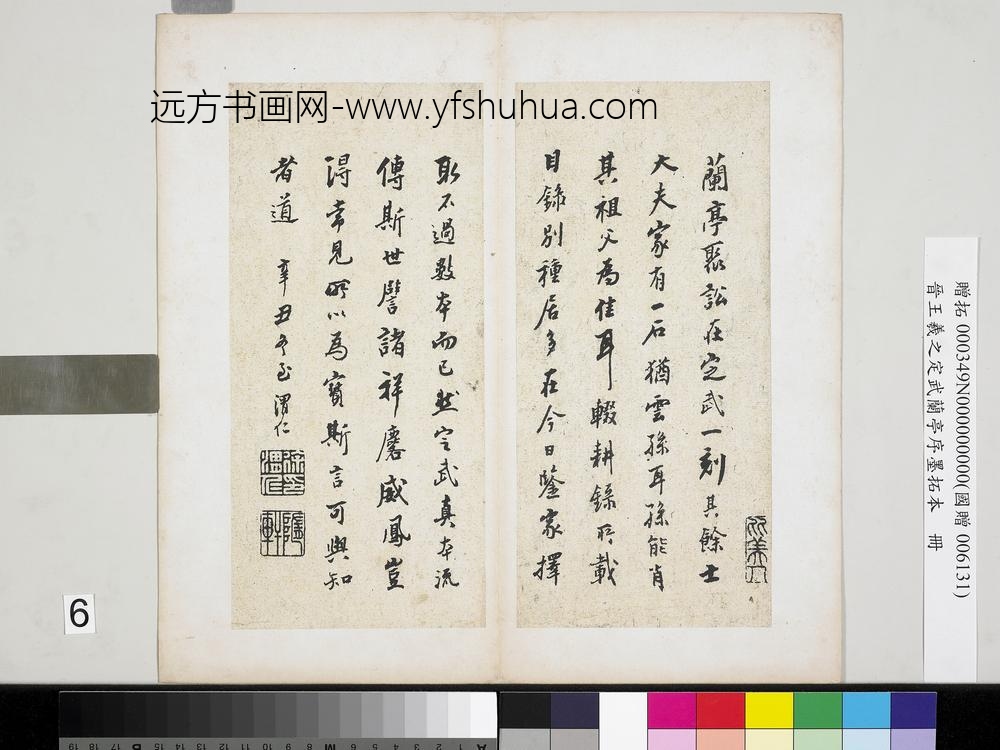 远方书画网-www.yfshuhua.com
蘭亭聚訟在定武一刻其餘士
大夫家有一石猶雲孫耳孫能肖
其祖父為佳耳輟耕錄所載
目錄別種居多在今日鑒家擇
取不過數本而已然定武真本流
傳斯世譬諸祥麐威鳳豈
得常見所以為寳斯言可與知
者道 辛丑冬至渭仁
贈拓 000349N000000000(國贈 006131)
晉王羲之定武蘭亭序墨拓本 冊
6
19 18 17 16 15 14 13 12 11 10 9 8 7 6 5 4 3 2 1
B
A